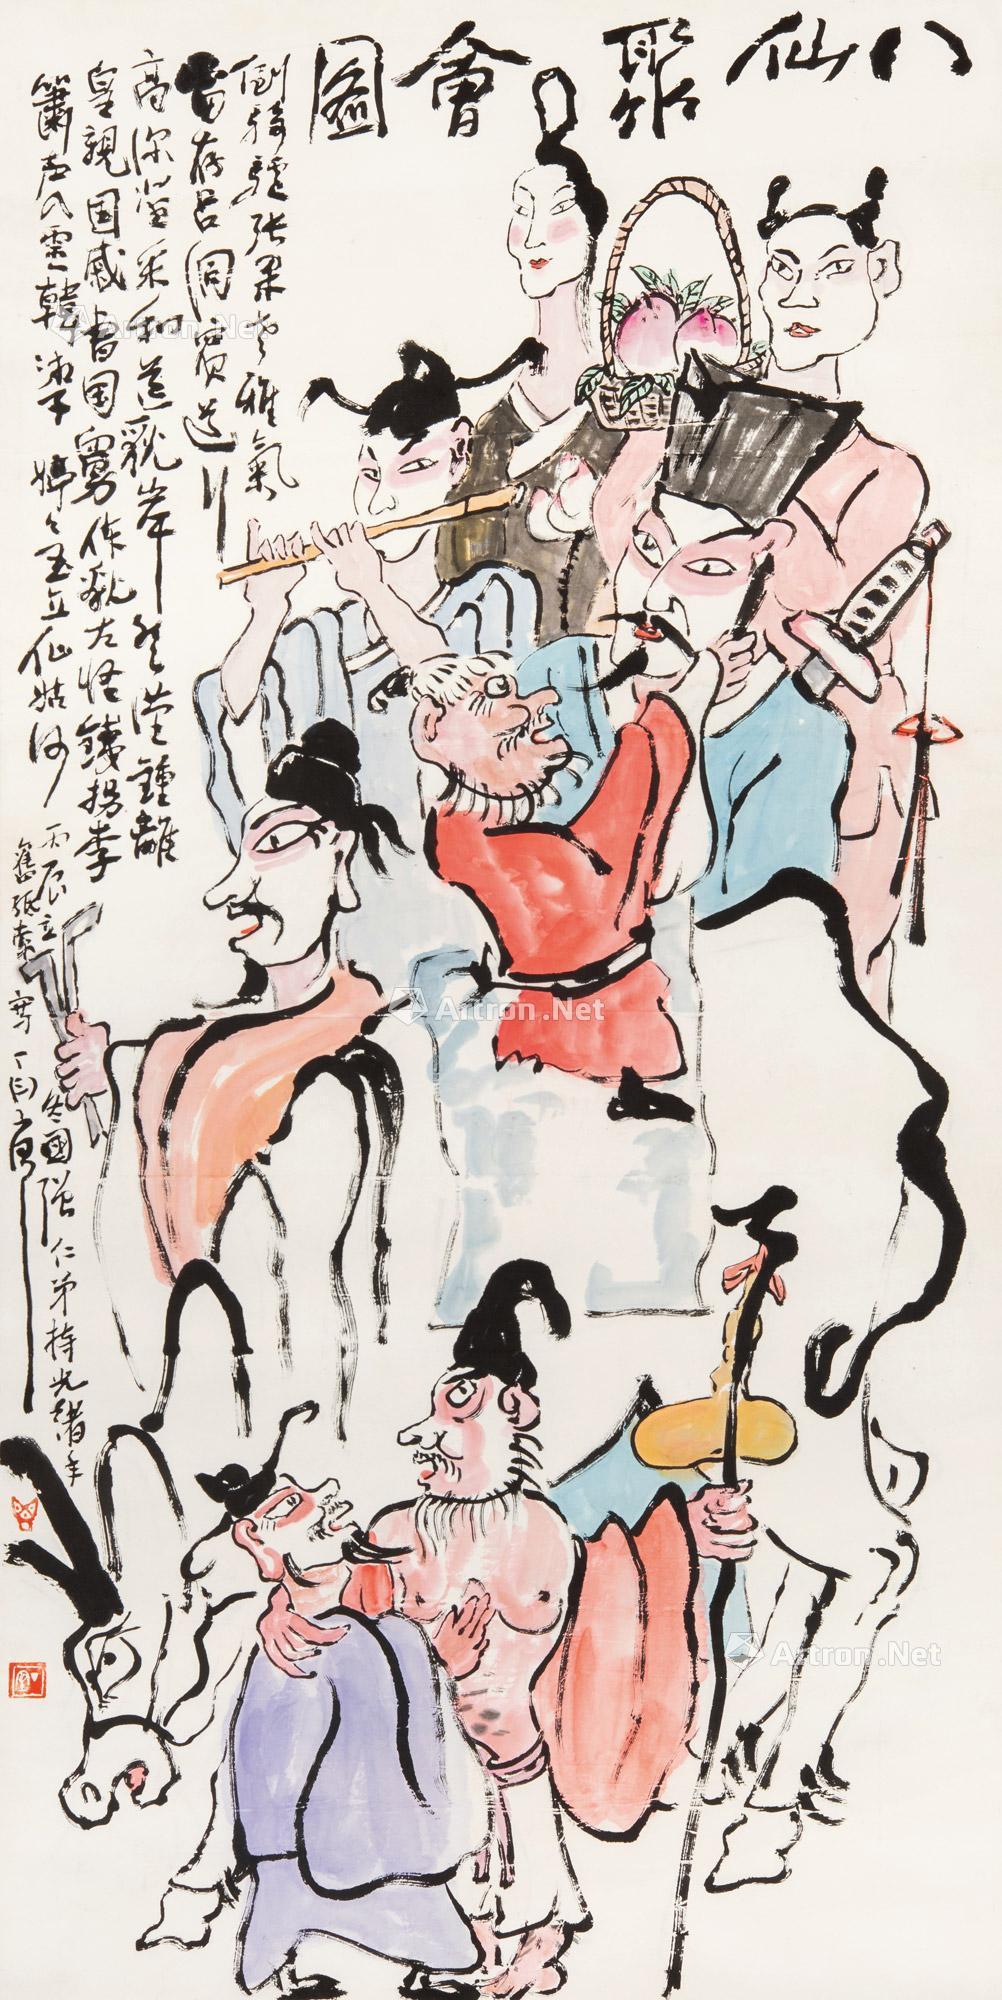 八仙聚會圖
倒騎驢張果老雅氣
當存呂洞賓道
高深藍采和道貌岸然漢鍾離
皇親國戚曹國舅作貌古怪鐵拐李
簫声入雲韓湘子婷々玉立仙姑何
丙辰立冬國強仁弟持光緒年
舊紙索寫丁衍庸
Artron.Net
Artron.Net
Artron.Net